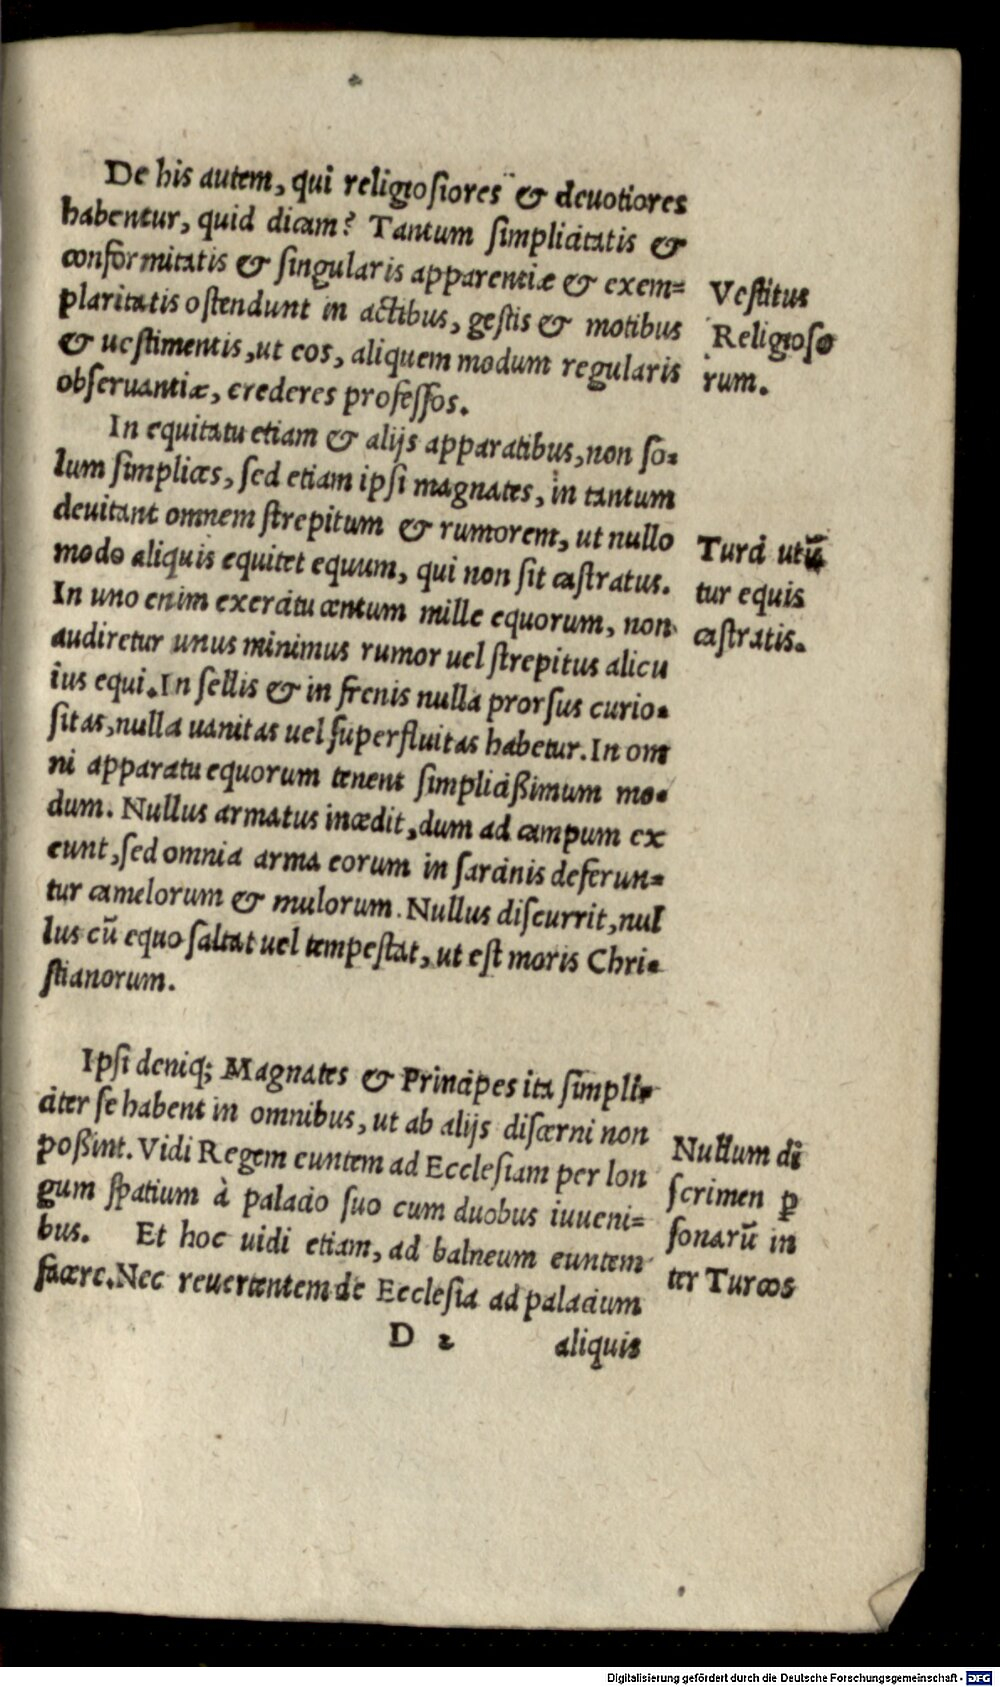 De his autem, qui religiosiores & deuotiores
habentur, quid dicam? Tantum simplicitatis &
conformitatis & singularis apparentiæ & exem=
plaritatis ostendunt in actibus, gestis & motibus
& uestimentis, ut eos, aliquem modum regularis
obseruantiæ, crederes professos.
Vestitus
Religioso
rum.
In equitatu etiam & alijs apparatibus, non so-
lum simplices, sed etiam ipsi magnates, in tantum
deuitant omnem strepitum & rumorem, ut nullo
modo aliquis equitet equum, qui non sit castratus.
In uno enim exercitu centum mille equorum, non
audiretur unus minimus rumor uel strepitus alicu
ius equi. In sellis & in frenis nulla prorsus curio-
sitas, nulla uanitas uel superfluitas habetur. In om
ni apparatu equorum tenent simplicißimum mo-
dum. Nullus armatus incedit, dum ad campum ex
eunt, sed omnia arma eorum in sarcinis deferun=
tur camelorum & mulorum. Nullus discurrit, nul
lus cū equo saltat uel tempestat, ut est moris Chri-
stianorum.
Turci utū
tur equis
castratis.
Ipsi deniq; Magnates & Principes ita simpli-
citer se habent in omnibus, ut ab alijs discerni non
poßint. Vidi Regem euntem ad Ecclesiam per lon
gum spatium à palacio suo cum duobus iuueni=
bus. Et hoc uidi etiam, ad balneum euntem
facere. Nec reuertentem de Ecclesia ad palacium
Nullum di
scrimen ꝑ
sonarū in
ter Turcos
D 2 aliquis
Digitalisierung gefördert durch die Deutsche Forschungsgemeinschaft - DFG